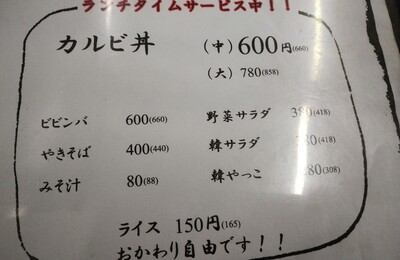 ランチタイムサービス中!!
カルビ丼 (中) 600円(660)
(大) 780(858)
ビビンバ 600(660) 野菜サラダ 380(418)
やきそば 400(440) 韓サラダ 380(418)
みそ汁 80(88) 韓やっこ 280(308)
ライス 150円(165)
おかわり自由です!!